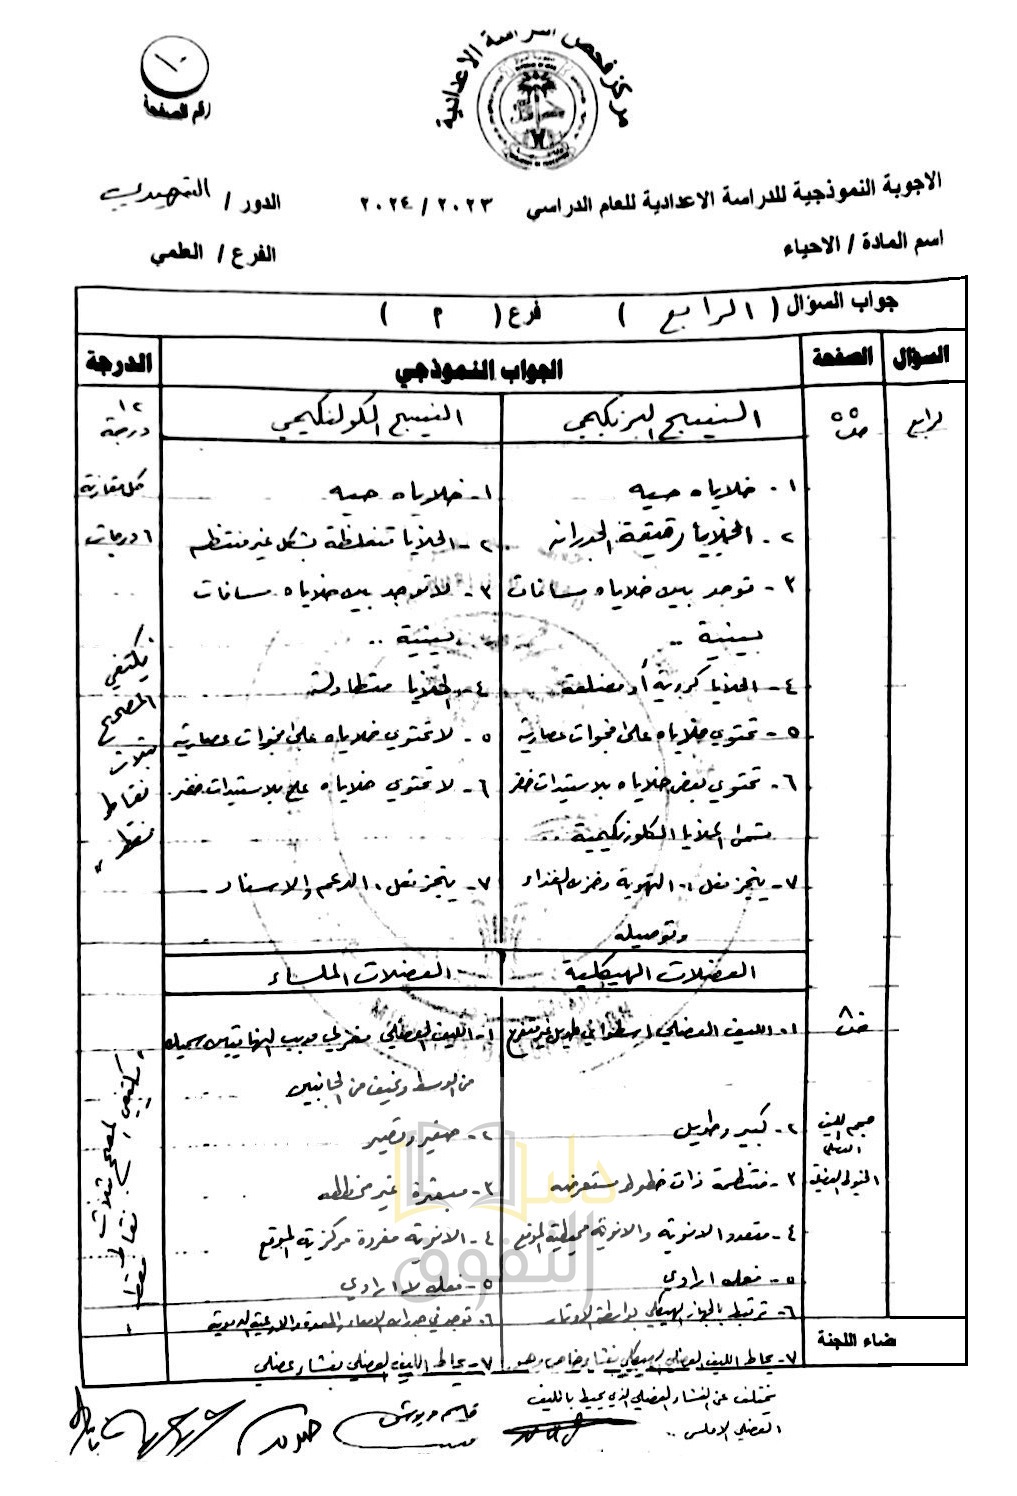 مركز فحص الدراسة الاعدادية
١٠
رقم الصفحة
الاجوبة النموذجية للدراسة الاعدادية للعام الدراسي ٢٠٢٣ / ٢٠٢٤ الدور / التمهيدي
اسم المادة / الاحياء الفرع / العلمي
جواب السؤال ( الرابع ) فرع ( ٢ )
السؤال الصفحة الجواب النموذجي الدرجة
الرابع ٥٥ النسيج البرنكيمي النسيج الكولنكيمي ١٢ درجة
١- خلاياه حيه ١- خلاياه حيه كل مقارنة
٢- الخلايا رقيقة الجدران ٢- الخلايا تتغلظ بشكل غير منتظم ٦ درجات
٣- توجد بين خلاياه مسافات ٣- لا توجد بين خلاياه مسافات
بينية .. بينية ..
٤- الخلايا كروية أو مضلعة ٤- الخلايا متطاولة
٥- تحتوي خلاياه على فجوات عصارية ٥- لا تحتوي خلاياه على فجوات عصارية
٦- تحتوي بعض خلاياه بلاستيدات خضر ٦- لا تحتوي خلاياه على بلاستيدات خضر
تسمى الخلايا الكلورنكيمية ..
٧- ينجز فعل التهوية وخزن الغذاء ٧- ينجز فعل الدعم والاسناد
وتوصيله
يكتفي المصحح بثلاث نقاط فقط
العضلات الهيكلية العضلات الملساء
٨٠ ١- الليف العضلي اسطواني طويل غير متفرع ١- الليف العضلي مغزلي مدبب النهايتين سميك
من الوسط ونحيف من الجانبين
٢- كبير وطويل ٢- صغير وقصير
٣- منتظمة ذات خطوط مستعرضه ٣- مبعثرة غير مخططه
٤- متعدد الانوية والانوية محيطية الموقع ٤- الانوية مفردة مركزية الموقع
٥- فعله ارادي ٥- فعله لا ارادي
٦- ترتبط بالجهاز الهيكلي بواسطة الاوتار ٦- توجد في جدران الامعاء والمعدة والاوعية الدموية
٧- يحاط الليف العضلي الهيكلي بغشاء خاص وهو ٧- يحاط الليف العضلي بغشاء عضلي
يختلف عن الغشاء العضلي الذي يحيط بالليف
العضلي الاملس ..
يكتفي المصحح بثلاث نقاط فقط
حجم الليف
اعضاء اللجنة
دليل
التفوق